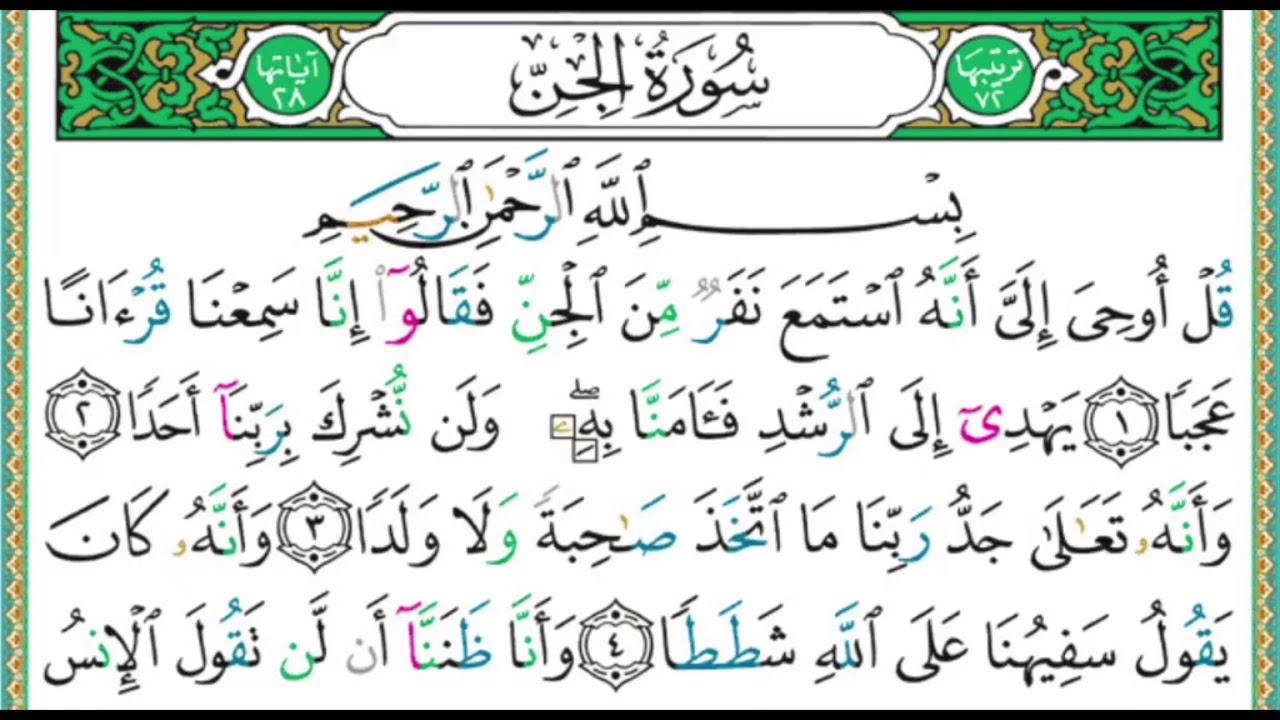 ترتيبها ٧٢ سُورَةُ الجِنِّ آياتها ٢٨
بِسْمِ ٱللَّهِ ٱلرَّحْمَٰنِ ٱلرَّحِيمِ
قُلْ أُوحِىَ إِلَىَّ أَنَّهُ ٱسْتَمَعَ نَفَرٌ مِّنَ ٱلْجِنِّ فَقَالُوٓا۟ إِنَّا سَمِعْنَا قُرْءَانًا
عَجَبًا ١ يَهْدِىٓ إِلَى ٱلرُّشْدِ فَـَٔامَنَّا بِهِۦ ۖ وَلَن نُّشْرِكَ بِرَبِّنَآ أَحَدًا ٢
وَأَنَّهُۥ تَعَٰلَىٰ جَدُّ رَبِّنَا مَا ٱتَّخَذَ صَٰحِبَةً وَلَا وَلَدًا ٣ وَأَنَّهُۥ كَانَ
يَقُولُ سَفِيهُنَا عَلَى ٱللَّهِ شَطَطًا ٤ وَأَنَّا ظَنَنَّآ أَن لَّن تَقُولَ ٱلْإِنسُ